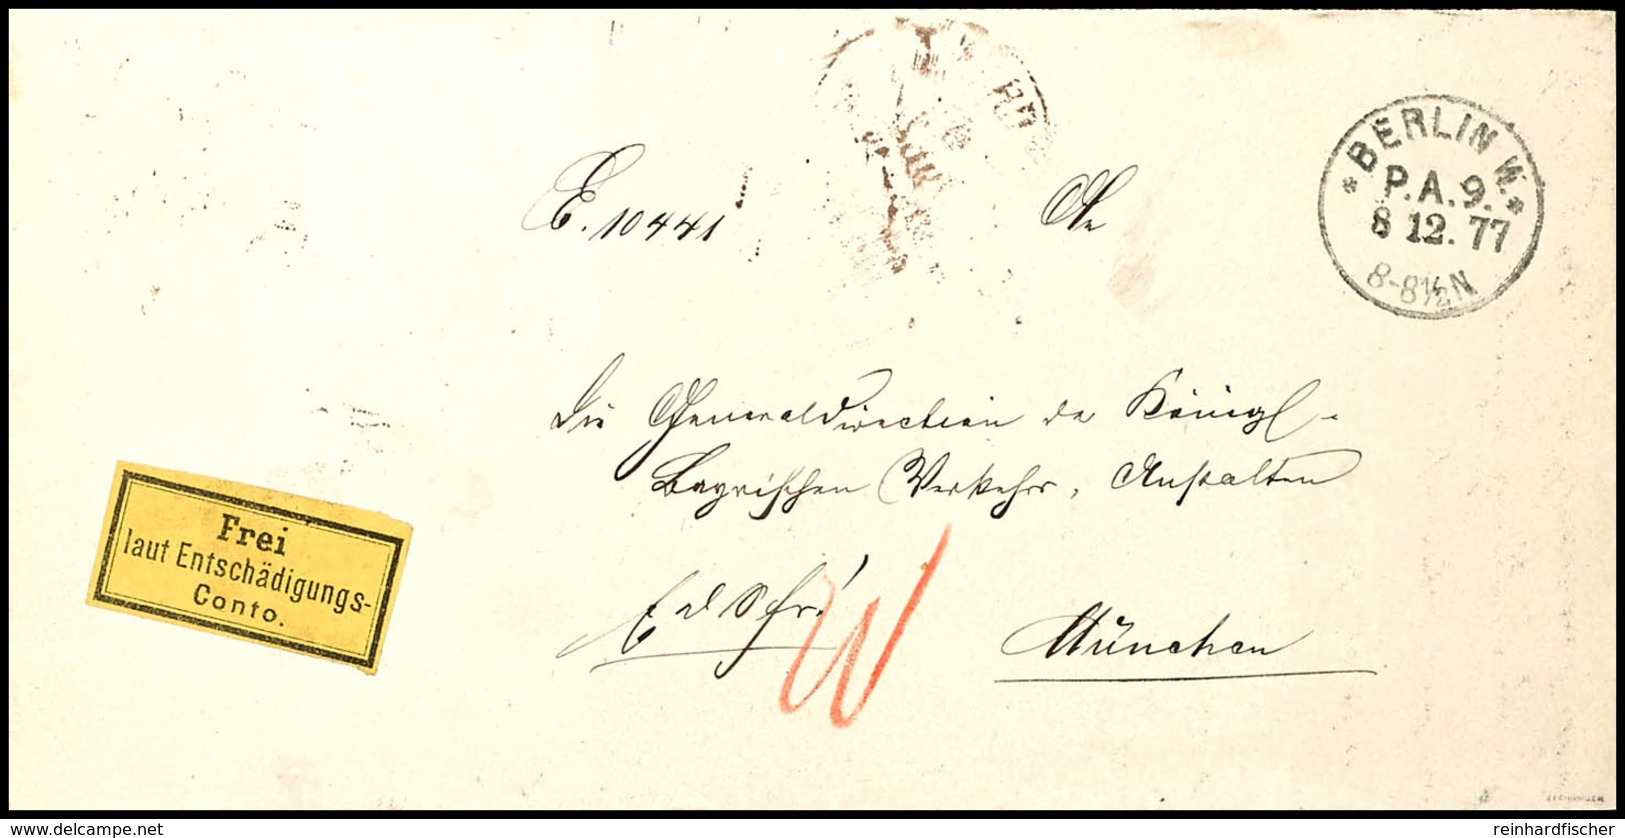 BERLIN W.
P. A. 9.
8 12. 77
8-8½N
E. 10441
An
die Generaldirection der Königl.
Bayrischen Verkehrs-Anstalten
München
Frei
laut Entschädigungs-
Conto.
delcampe.net
reinhardfischer